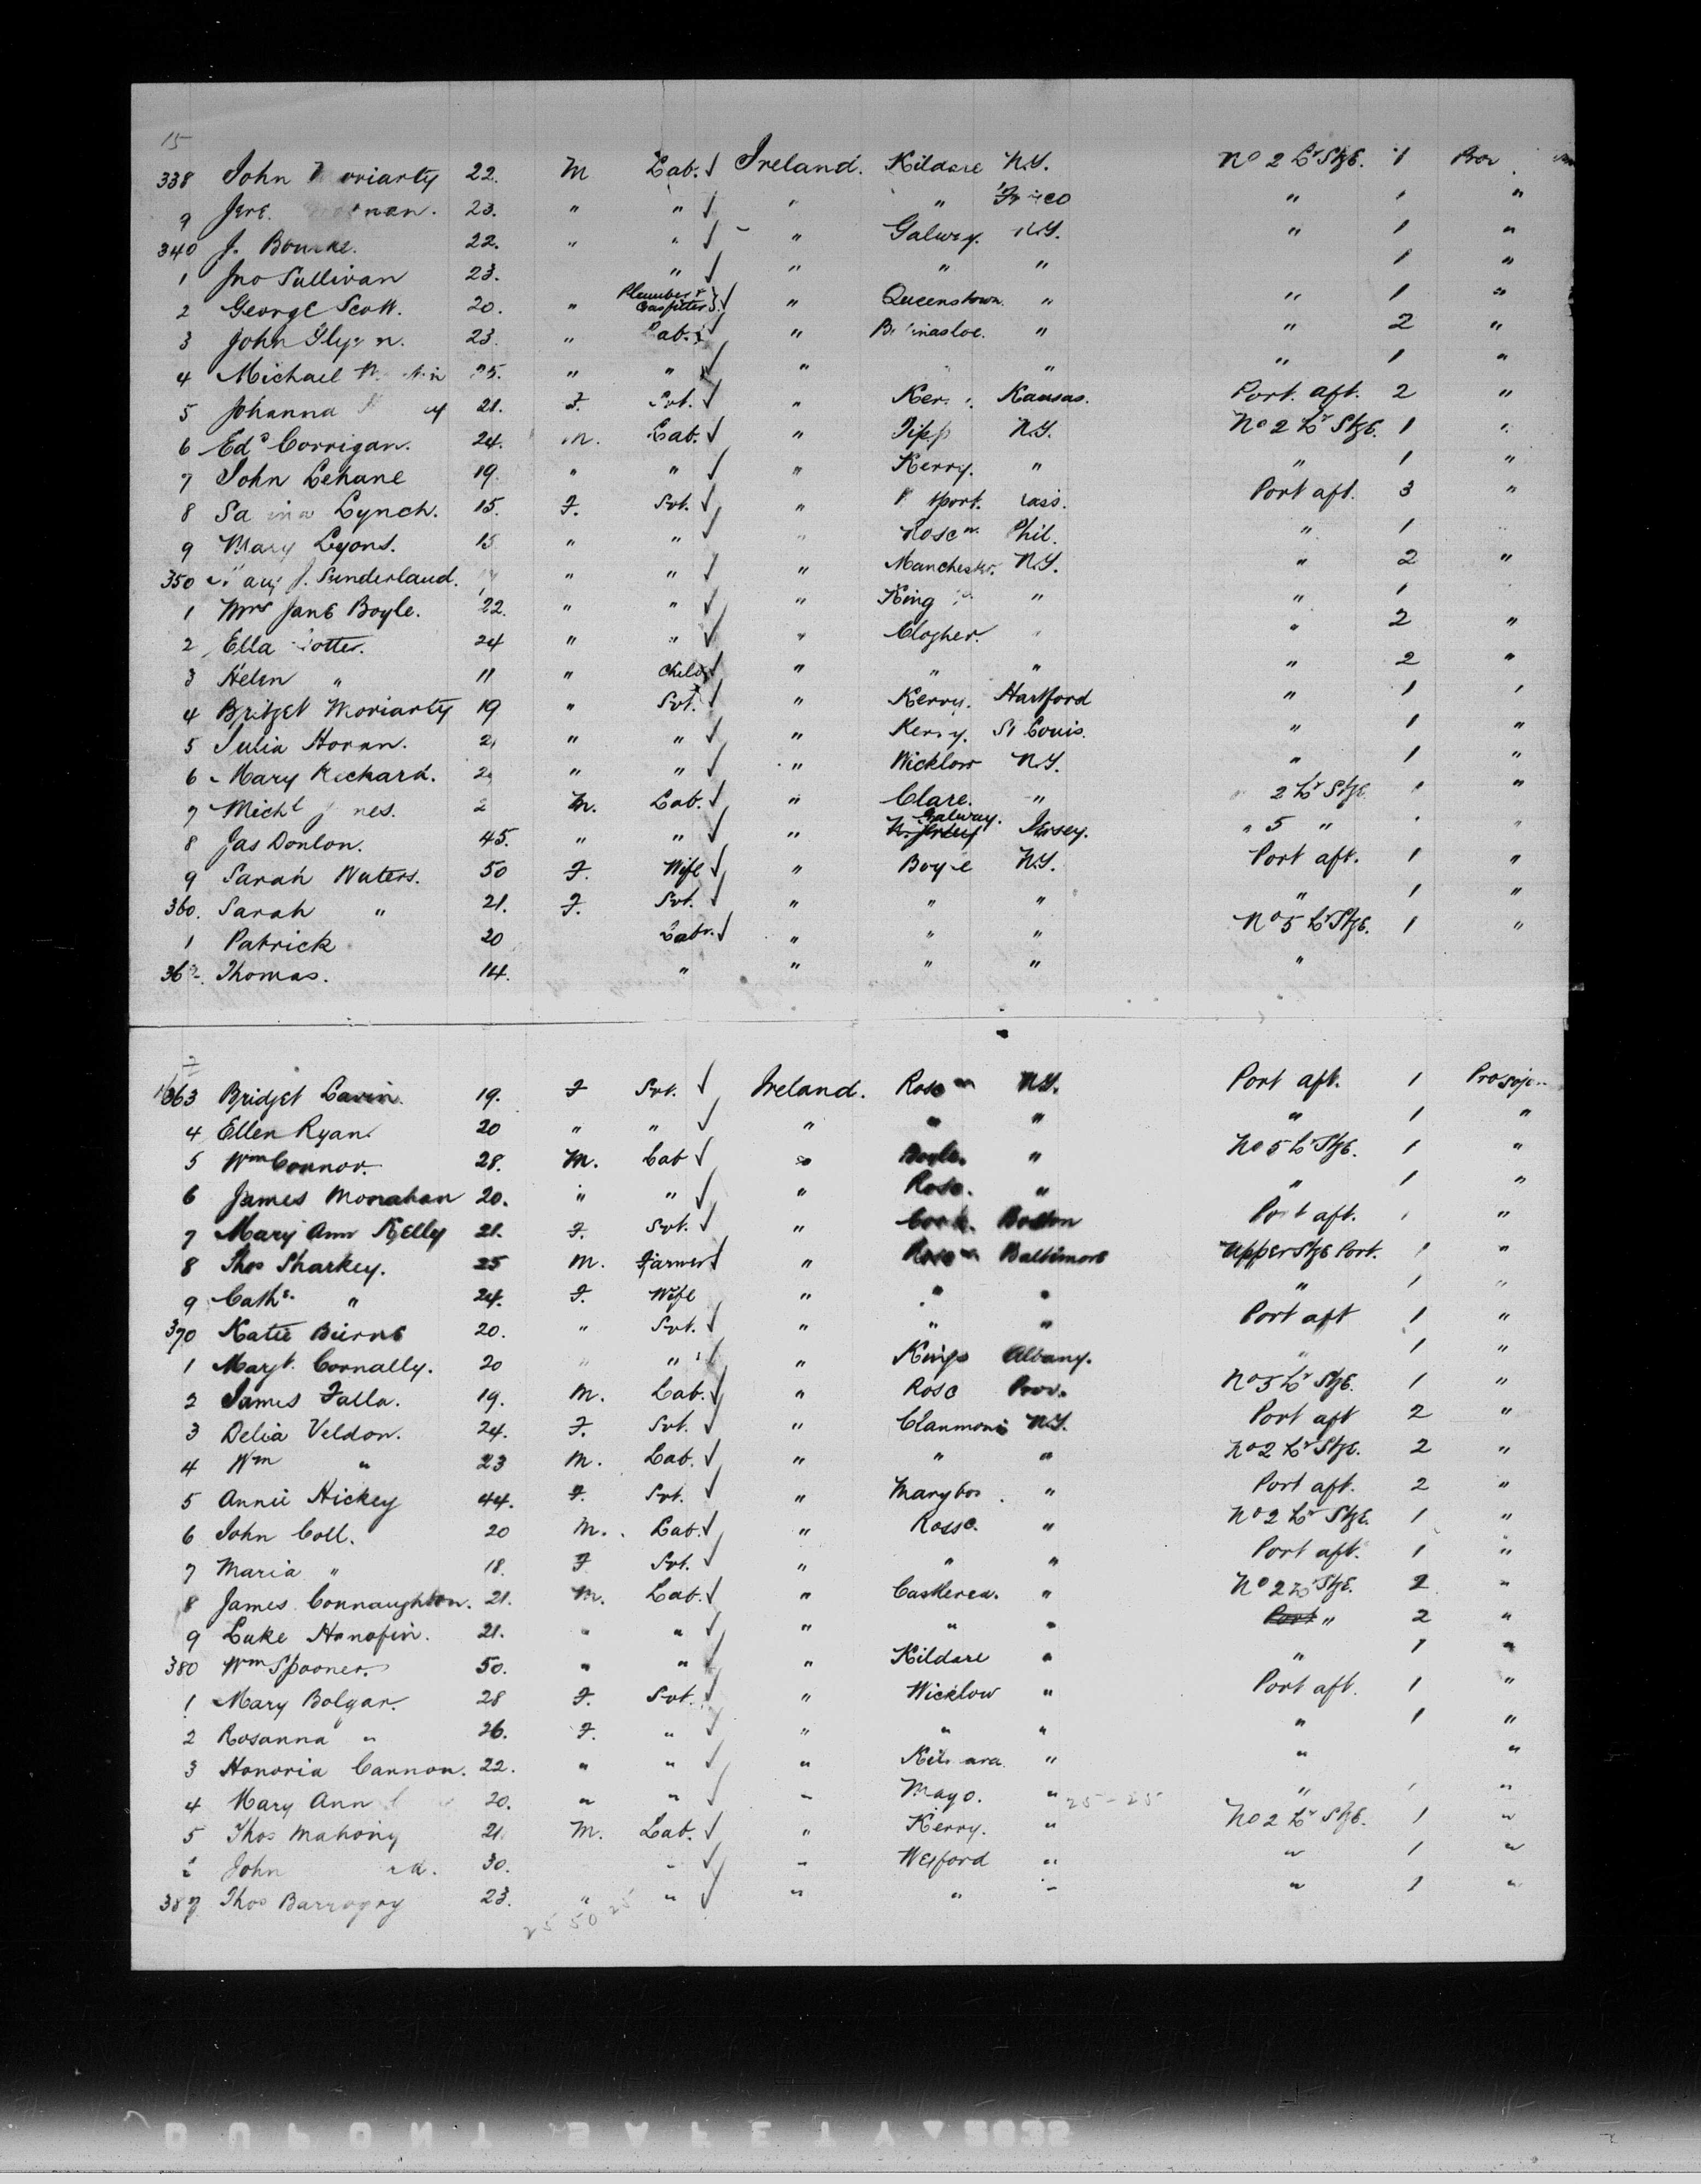 15
338 John Moriarty 22. M Lab. Ireland. Kildare N.Y. No 2 Lr Stge. 1
9 Jere. 23. " " " " " " "
340 J. Bourke. 22. " " " Galway. N.Y. " 1 "
1 Jno Sullivan 23. " " " " 1 "
2 George Scott. 20. " Plumber & Gasfitter " Queenstown. " " 1 "
3 John Glynn. 23. " Lab. " Ballinasloe. " " 2 "
4 Michael 25. " " " " " 1 "
5 Johanna 21. F. Svt. " Kansas. Port. aft. 2 "
6 Edd Corrigan. 24. M. Lab. " Tipp N.Y. No 2 Lr Stge. 1 "
7 John Lehane 19. " " " Kerry. " " 1 "
8 Lynch. 15. F. Svt. " Port aft. 3 "
9 Mary Lyons. 15 " " " Rosc n. Phil. " 1
350 Mary J. Sunderland. " " " Manchester. N.Y. " 2 "
1 Mrs Jane Boyle. 22. " " " King " " 1
2 Ella 24 " " " Clogher. " " 2 "
3 Helen " 11 " Child " " " " 2 "
4 Bridget Moriarty 19 " Svt. " Kerry. Hartford " 1 "
5 Julia Horan. " " " Kerry. St Louis. " 1 "
6 Mary Rechard. " " " Wicklow N.Y. " 1 "
7 Michl M. Lab. " Clare. " 2 Lr Stge. 1 "
8 Jas Donlon. 45. " " " Galway. Jersey. " 5 " "
9 Sarah Waters. 50 F. Wife " Boyle N.Y. Port aft. 1 "
360. Sarah " 21. F. Svt. " " " " 1 "
1 Patrick 20 Labr. " " " No 5 Lr Stge. 1 "
362. Thomas. 14. " " " " "
363 Bridget Lavin. 19. F Svt. Ireland. Rosc n N.Y. Port aft. 1
4 Ellen Ryan. 20 " " " " " " 1 "
5 Wm Connor. 28. M. Lab " Boyle. " No 5 Lr Stge. 1 "
6 James Monahan 20. " " " Rosc. " " 1 "
7 Mary Ann Kelly 21. F. Svt. " Cork. Boston Port aft. "
8 Thos Sharkey. 25 M. Farmer " Rosc n Baltimore Upper Stge Port. 1 "
9 Cathe. " 24. F. Wife " " " " 1 "
370 Katie Beirne 20. " Svt. " " " Port aft 1 "
1 Margt. Connally. 20 " " " Kings Albany. " 1 "
2 James Falla. 19. M. Lab. " Rosc Prov. No 5 Lr Stge. 1 "
3 Delia Veldon. 24. F. Svt. " Clanmoris N.Y. Port aft 2 "
4 Wm " 23 M. Lab. " " " No 2 Lr Stge. 2 "
5 Annie Hickey 44. F. Svt. " Marybor. " Port aft. 2 "
6 John Coll. 20 M. Lab. " Rossc. " No 2 Lr Stge. 1 "
7 Maria " 18. F Svt. " " " Port aft. 1 "
8 James Connaughton. 21. M. Lab. " Castlerea. " No 2 Lr Stge. 2 "
9 Luke Hanafin. 21. " " " " " Port " 2 "
380 Wm Spooner. 50. " " " Kildare " " 1 "
1 Mary Bolgar. 28 F. Svt. " Wicklow " Port aft. 1 "
2 Rosanna " 26. F. " " " " " 1 "
3 Honoria Cannon. 22. " " " " " "
4 Mary Ann 20. " " " Mayo. " 25-25 " "
5 Thos Mahony 21. M. Lab. " Kerry. " No 2 Lr Stge. 1 "
John 30. " " Wexford " " 1 "
387 Thos Barragry 23. " " " " " " 1 "
25 50 25
DUPONT SAFETY